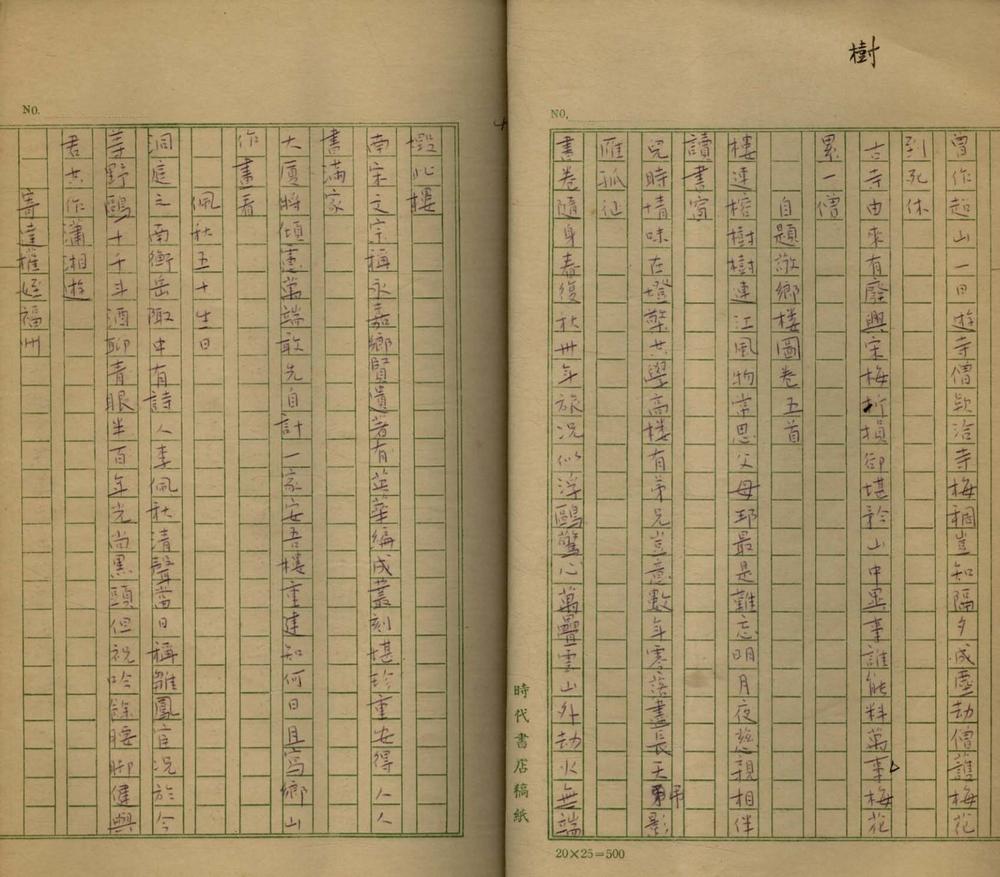 樹
NO.
曾作超山一日遊寺僧歡洽寺梅稠豈知隔夕成塵劫僧護梅花
到死休
古寺由來有廢興宋梅折損卻堪矜山中異事誰能料萬事梅花
累一僧
自題敬鄉樓圖卷五首
樓連榕樹樹連江風物常思父母邦最是難忘明月夜慈親相伴
讀書窗
兒時情味在燈檠共學高樓有弟兄豈意數年零落盡長天弔影
雁孤征
書卷隨身春復秋卅年旅況似浮鷗驚心萬疊雲山外劫火無端
時代書店稿紙
20×25=500
NO.
燬此樓
南宋之宗稱永嘉鄉賢遺著有英華編成叢刻堪珍重安得人人
書滿家
大廈將傾慮萬端敢先自計一家安吾樓重建知何日且寫鄉山
作畫看
佩秋五十生日
洞庭之南衡岳陬中有詩人李佩秋清聲當日稱雛鳳官況於今
等野鷗十千斗酒聊青眼半百年光尚黑頭但祝吟餘腰腳健與
君共作瀟湘遊
寄達權姪福州